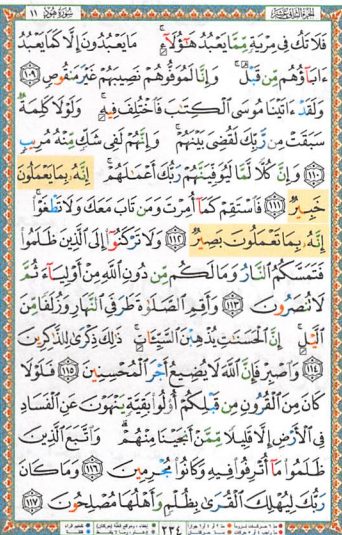 الجزء الثاني عشر سورة هود ١١
فَلَا تَكُ فِي مِرْيَةٍ مِّمَّا يَعْبُدُ هَٰٓؤُلَآءِ ۚ مَا يَعْبُدُونَ إِلَّا كَمَا يَعْبُدُ
ءَابَآؤُهُم مِّن قَبْلُ ۚ وَإِنَّا لَمُوَفُّوهُمْ نَصِيبَهُمْ غَيْرَ مَنقُوصٍ ١٠٩
وَلَقَدْ ءَاتَيْنَا مُوسَى ٱلْكِتَٰبَ فَٱخْتُلِفَ فِيهِ ۚ وَلَوْلَا كَلِمَةٌ
سَبَقَتْ مِن رَّبِّكَ لَقُضِىَ بَيْنَهُمْ ۚ وَإِنَّهُمْ لَفِى شَكٍّ مِّنْهُ مُرِيبٍ
١١٠ وَإِنَّ كُلًّا لَّمَّا لَيُوَفِّيَنَّهُمْ رَبُّكَ أَعْمَٰلَهُمْ ۚ إِنَّهُۥ بِمَا يَعْمَلُونَ
خَبِيرٌ ١١١ فَٱسْتَقِمْ كَمَآ أُمِرْتَ وَمَن تَابَ مَعَكَ وَلَا تَطْغَوْا۟ ۚ
إِنَّهُۥ بِمَا تَعْمَلُونَ بَصِيرٌ ١١٢ وَلَا تَرْكَنُوٓا۟ إِلَى ٱلَّذِينَ ظَلَمُوا۟
فَتَمَسَّكُمُ ٱلنَّارُ وَمَا لَكُم مِّن دُونِ ٱللَّهِ مِنْ أَوْلِيَآءَ ثُمَّ
لَا تُنصَرُونَ ١١٣ وَأَقِمِ ٱلصَّلَوٰةَ طَرَفَىِ ٱلنَّهَارِ وَزُلَفًا مِّنَ
ٱلَّيْلِ ۚ إِنَّ ٱلْحَسَنَٰتِ يُذْهِبْنَ ٱلسَّيِّـَٔاتِ ۚ ذَٰلِكَ ذِكْرَىٰ لِلذَّٰكِرِينَ
١١٤ وَٱصْبِرْ فَإِنَّ ٱللَّهَ لَا يُضِيعُ أَجْرَ ٱلْمُحْسِنِينَ ١١٥ فَلَوْلَا
كَانَ مِنَ ٱلْقُرُونِ مِن قَبْلِكُمْ أُو۟لُوا۟ بَقِيَّةٍ يَنْهَوْنَ عَنِ ٱلْفَسَادِ
فِى ٱلْأَرْضِ إِلَّا قَلِيلًا مِّمَّنْ أَنجَيْنَا مِنْهُمْ ۗ وَٱتَّبَعَ ٱلَّذِينَ
ظَلَمُوا۟ مَآ أُتْرِفُوا۟ فِيهِ وَكَانُوا۟ مُجْرِمِينَ ١١٦ وَمَا كَانَ
رَبُّكَ لِيُهْلِكَ ٱلْقُرَىٰ بِظُلْمٍ وَأَهْلُهَا مُصْلِحُونَ ١١٧
٢٣٤